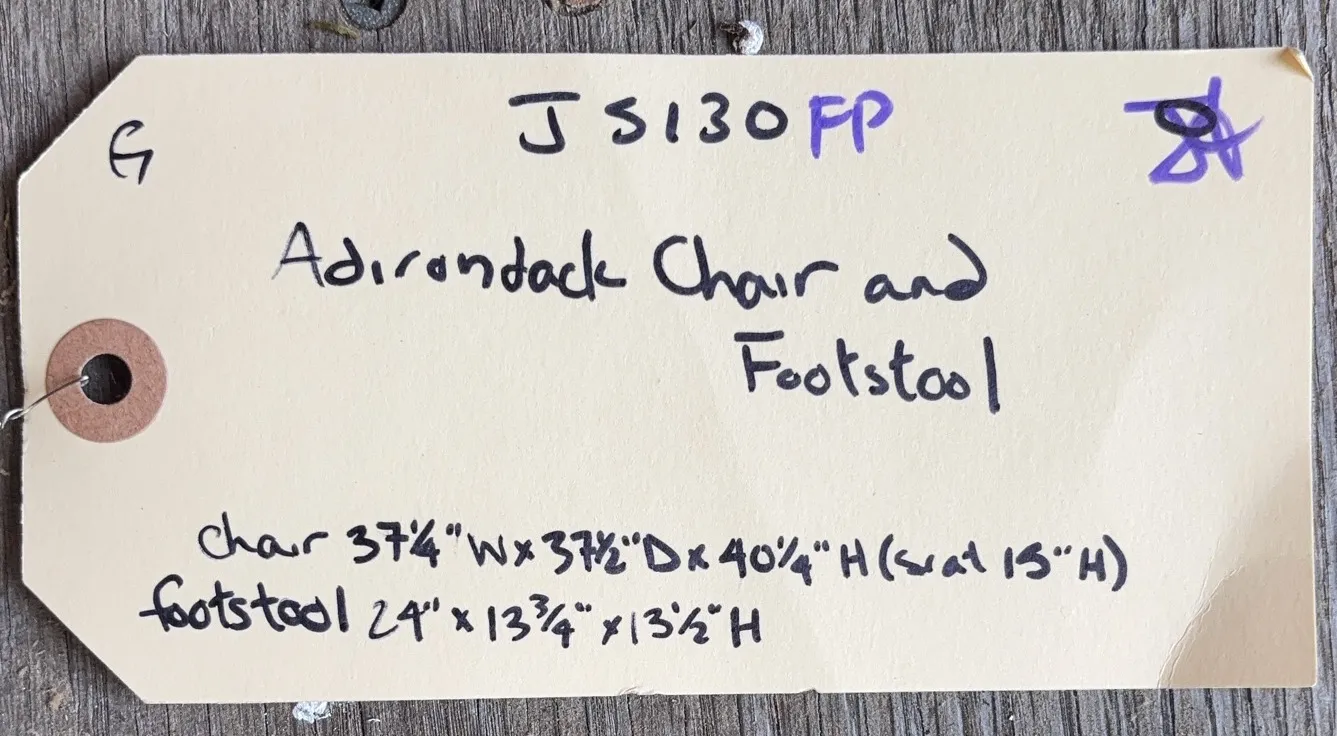 G
JS130 FP
Adirondack Chair and
Footstool
chair 37¼" W x 37½" D x 40¼" H (seat 15" H)
footstool 24" x 13¾" x 13½" H